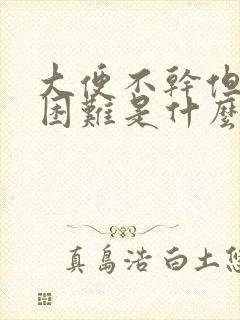 大便不幹但
困難是什麼
真島浩 白土悠